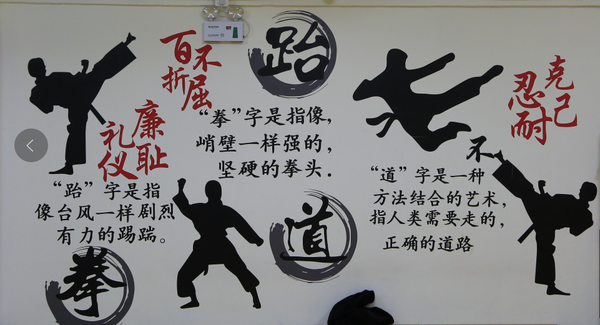 百折
不屈
礼仪
廉耻
跆
"拳"字是指像,
峭壁一样强的,
坚硬的拳头.
"跆"字是指
像台风一样剧烈
有力的踢踹。
拳
道
忍耐
克己
不
"道"字是一种
方法结合的艺术,
指人类需要走的,
正确的道路